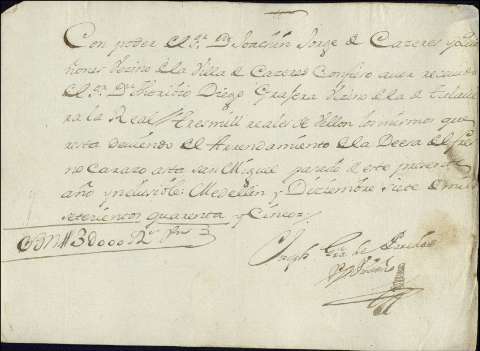 Con poder del Sr. Dn Joachin Jorge de Cazeres y Qui
ñones Vezino de la Villa de Cazeres Confieso auer recauido
del Sr. Dn Thoribio Diego Grajera Vezino de la de Talaue
ra la Real tres mill reales de Vellon los mismos que
resta deuiendo del Arrendamiento de la Deesa del
no Carazo asta san Miguel pasado de este presente
año ynclusible: Medellin y Diziembre siete de mill
setezientos quarenta y Cinco
3000 Rs Vn
Joseph Gra de Paredes